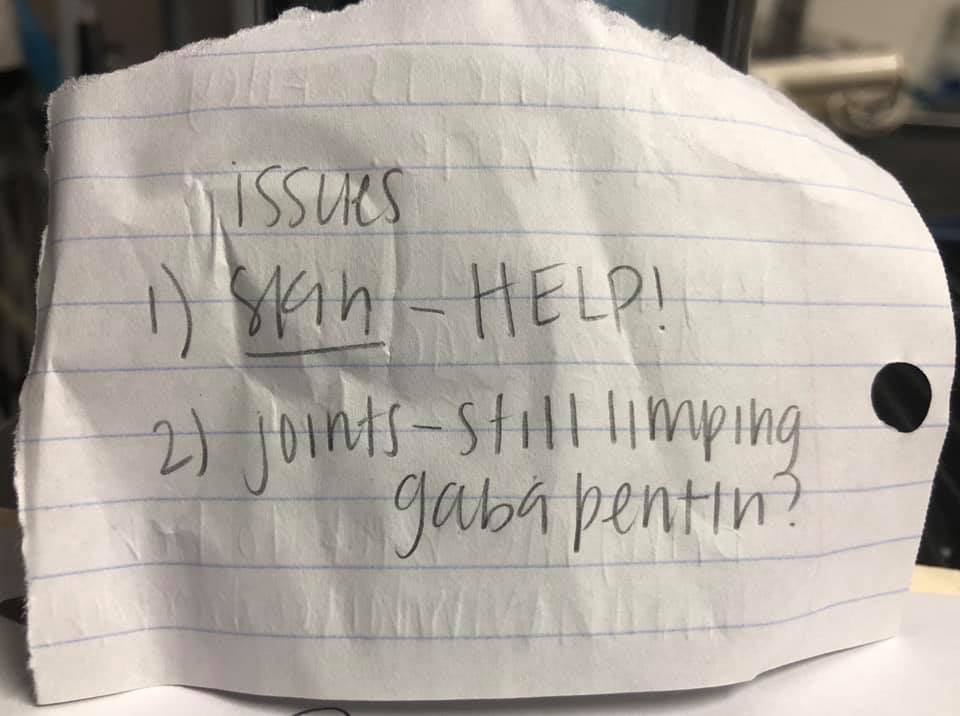 issues
1) skin - HELP!
2) joints - still limping
gabapentin?